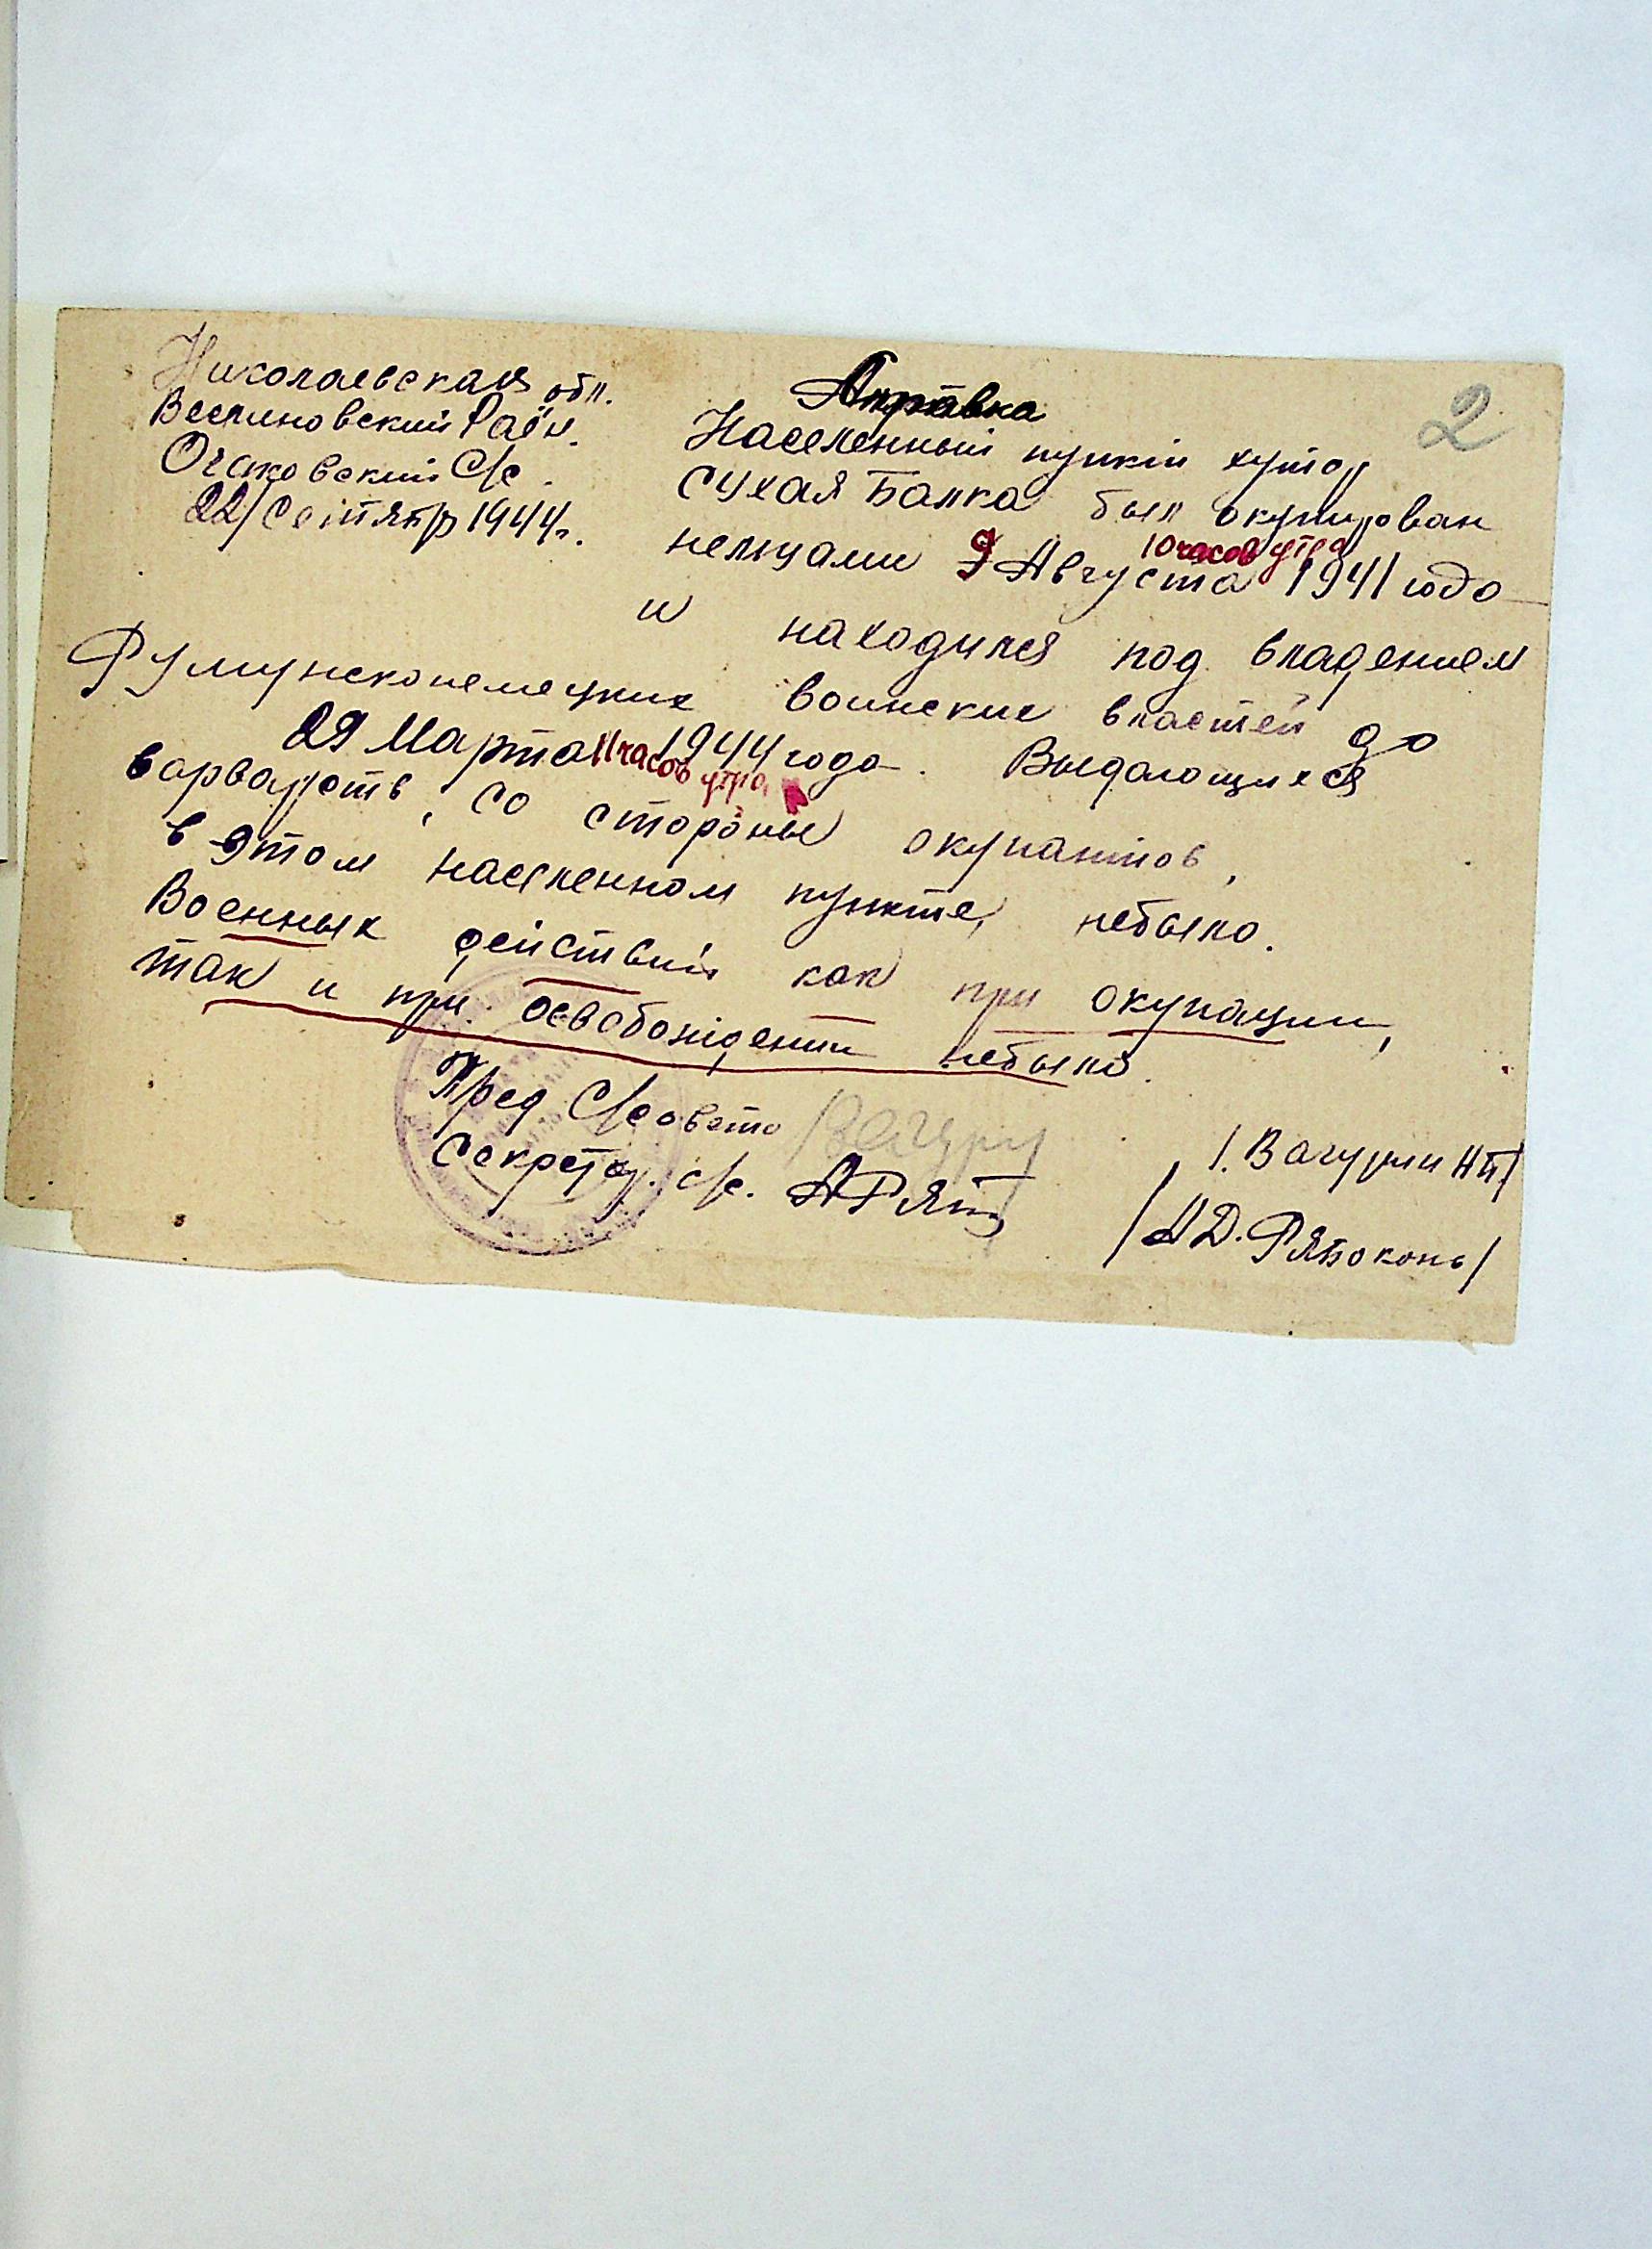 2
Николаевская обл.
Веслиновский Раён.
Очаковский С/с.
22/Сентябр 1944г.
Справка
Населенный пункт хутор
Сухая Балка был окупирован
10 часов утра
немцами 9 Августа 1941 года
и находился под владением
Румунсконемецких воинских властей до
29 Марта 11 часов утра 1944 года. Выдающихся
варварств, со стороны окупантов,
в этом населенном пункте, небыло.
Военных действий как при окупации,
так и при освобождении небыло.
Пред С/совета /. Вагурин НП/
Секретар. с/с. АРяб /АД. Рябоконь/